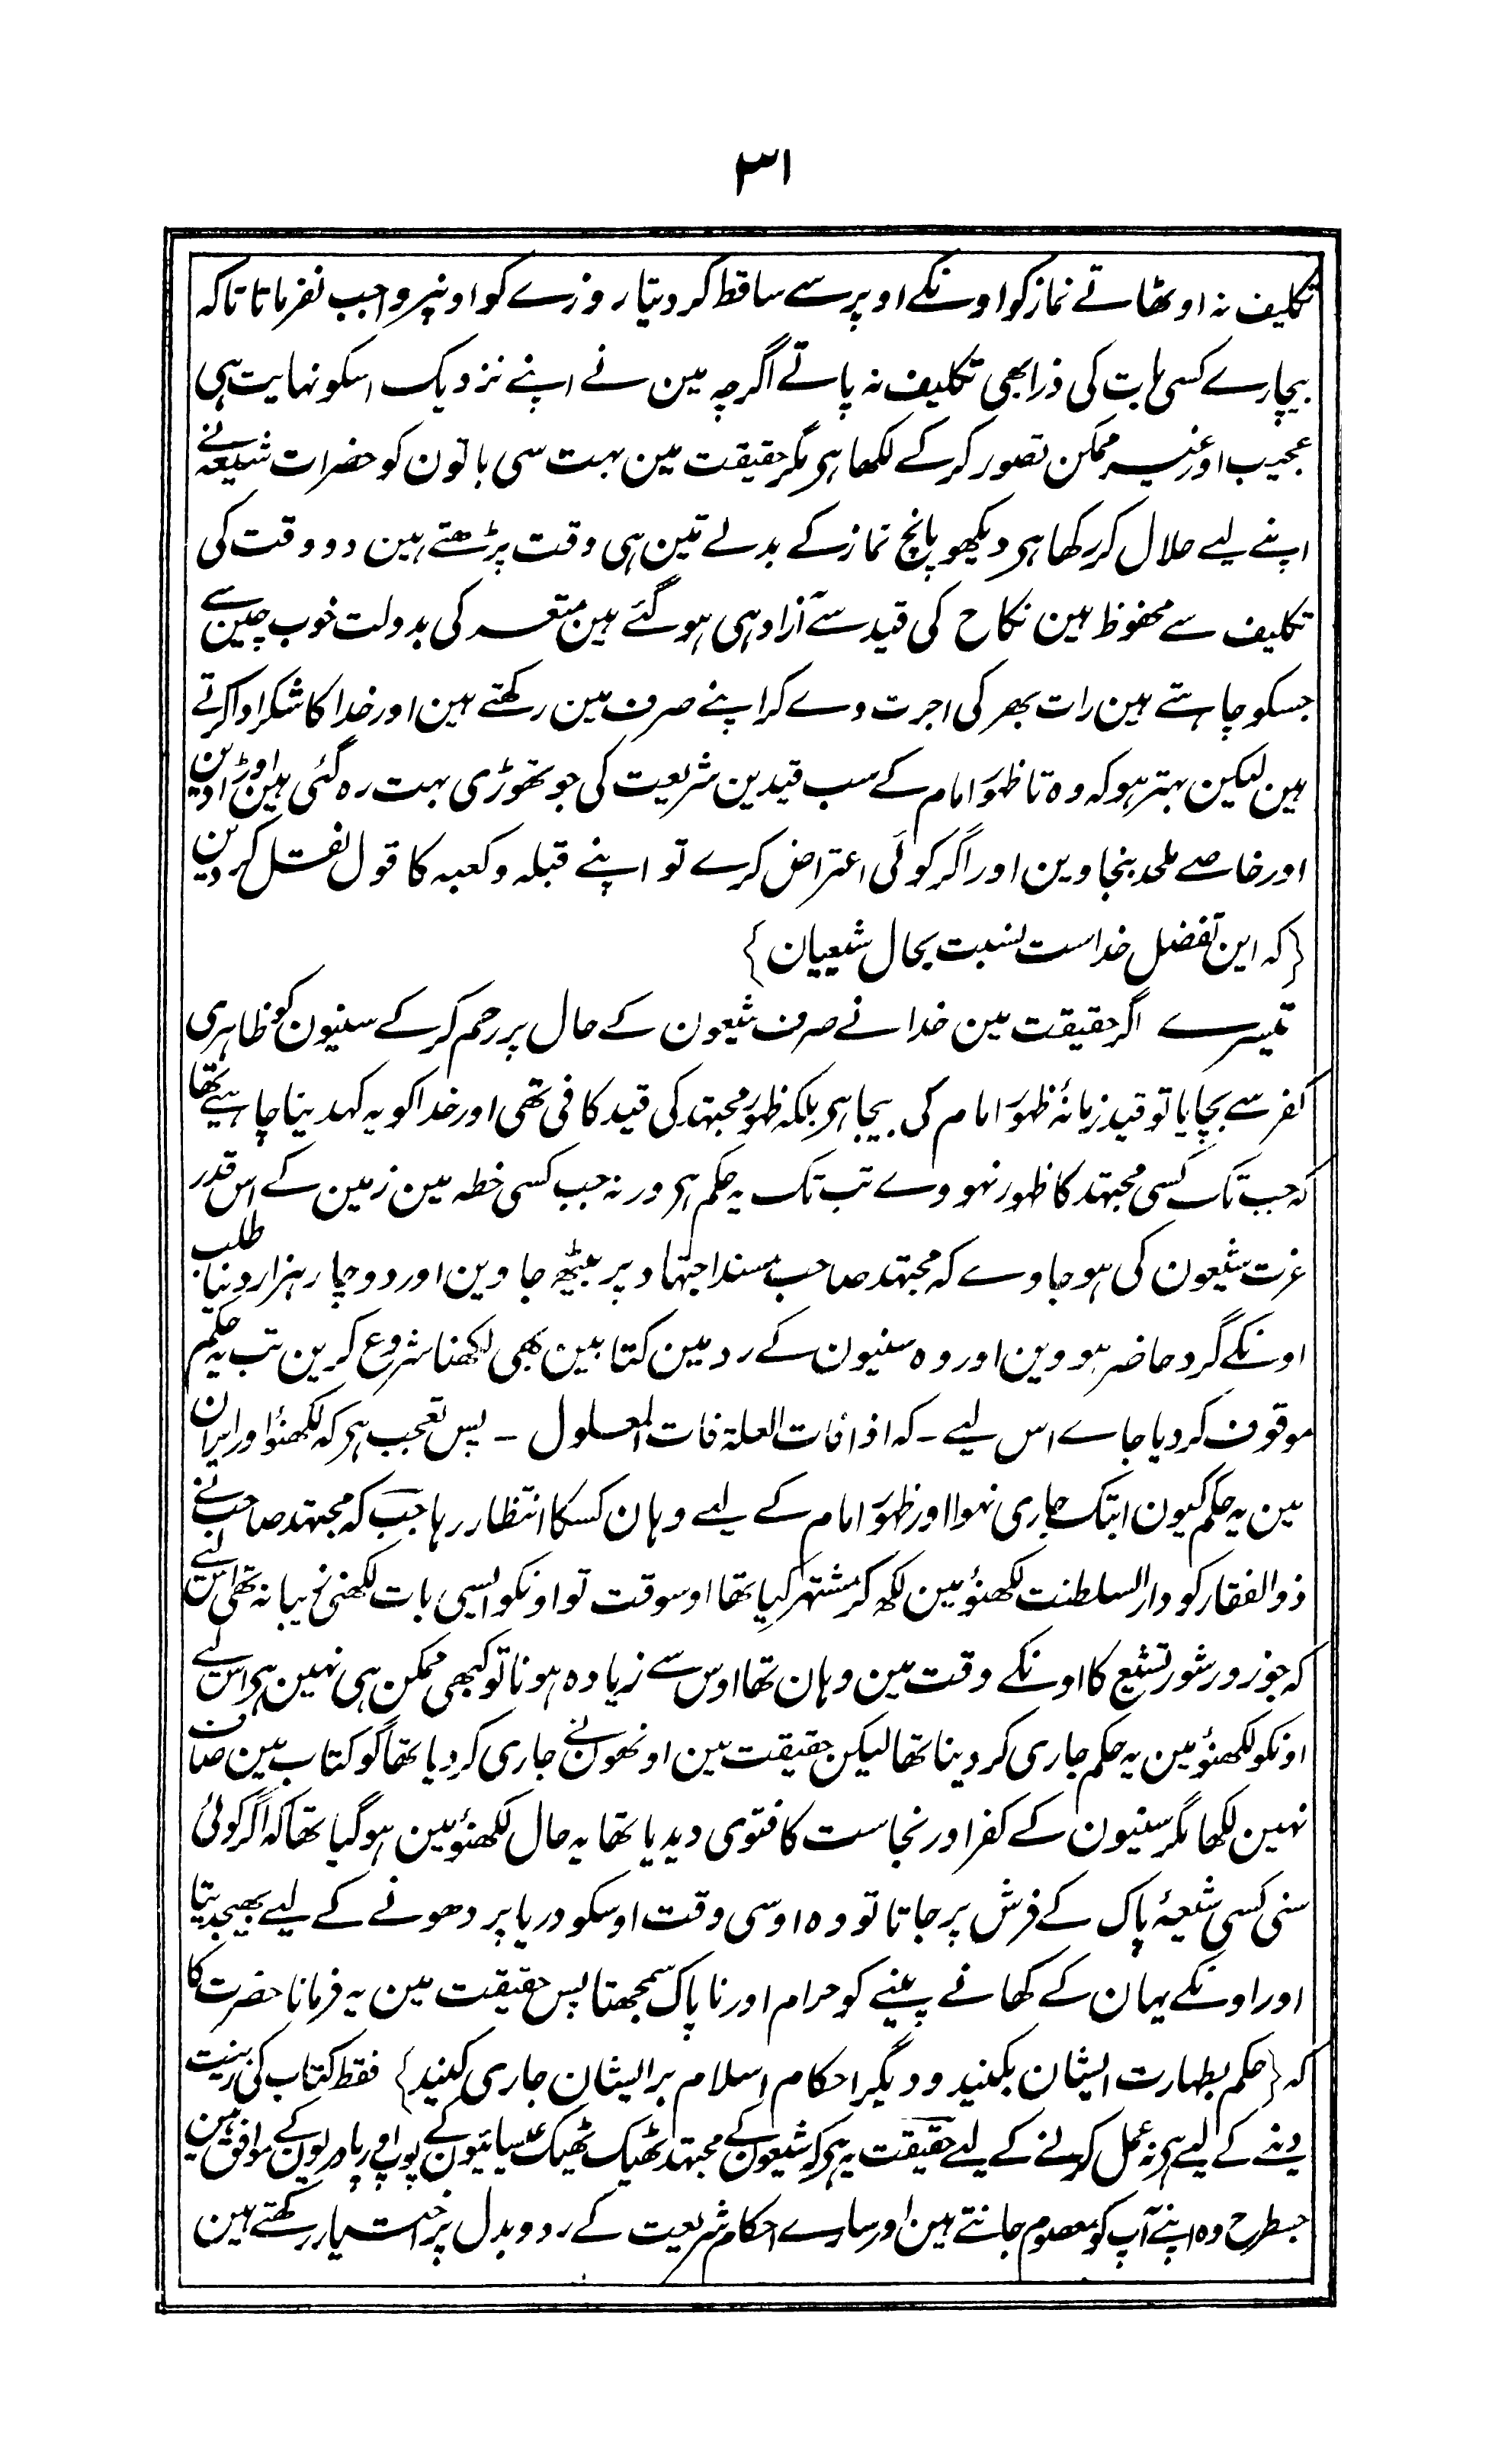 ۳۱
تکلیف نہ اوٹھاتے نماز کو اونکے اوپر سے ساقط کر دیتا روزے کو اونپر واجب نفرماتا تاکہ
بیچارے کسی بات کی ذرا بھی تکلیف نہ پاتے اگرچہ مین نے اپنے نزدیک اسکو نہایت ہی
عجیب اور غیر ممکن تصور کر کے لکھا ہی مگر حقیقت مین بہت سی باتون کو حضرات شیعہ نے
اپنے لیے حلال کر رکھا ہی دیکھو پانچ نماز کے بدلے تین ہی وقت پڑھتے ہین دو وقت کی
تکلیف سے محفوظ ہین نکاح کی قید سے آزاد ہی ہو گئے ہین متعہ کی بدولت خوب چین سے
جسکو چاہتے ہین رات بھر کی اجرت دے کر اپنے صرف مین رکھتے ہین اور خدا کا شکر ادا کرتے
ہین لیکن بہتر ہو کہ وہ تا ظہور امام کے سب قیدین شریعت کی جو تھوڑی بہت رہ گئی ہین اوڑا دین
اور خاصے ملحد بنجاوین اور اگر کوئی اعتراض کرے تو اپنے قبلہ و کعبہ کا قول نقل کر دین
{کہ این تفضل خداست بنسبت بحال شیعیان}
تیسرے اگر حقیقت مین خدا نے صرف شیعون کے حال پر رحم کر کے سنیون کو ظاہری
کفر سے بچایا تو قید زمانۂ ظہور امام کی بیجا ہی بلکہ ظہور مجتہد کی قید کافی تھی اور خدا کو یہ کہدینا چاہیے تھا
کہ جب تک کسی مجتہد کا ظہور نہووے تب تک یہ حکم ہی ورنہ جب کسی خطہ مین زمین کے اس قدر
عزت شیعون کی ہو جاوے کہ مجتہد صاحب مسند اجتہاد پر بیٹھ جاوین اور دو چار ہزار دنیا طلب
اونکے گرد حاضر ہووین اور وہ سنیون کے رد مین کتابین بھی لکھنا شروع کرین تب یہ حکم
موقوف کر دیا جاے اس لیے ۔ کہ اذا فات العلۃ فات المعلول ۔ پس تعجب ہی کہ لکھنؤ اور ایران
مین یہ حکم کیون ابتک جاری نہوا اور ظہور امام کے لیے وہان کسکا انتظار رہا جب کہ مجتہد صاحب نے
ذوالفقار کو دارالسلطنت لکھنؤ مین لکھ کر مشتہر کیا تھا اوسوقت تو اونکو ایسی بات لکھنی زیبا نہ تھی اس لیے
کہ جو زور شور تشیع کا اونکے وقت مین وہان تھا اوس سے زیادہ ہونا تو کبھی ممکن ہی نہین ہی اس لیے
اونکو لکھنؤ مین یہ حکم جاری کر دینا تھا لیکن حقیقت مین اونھون نے جاری کر دیا تھا گو کتاب مین صاف
نہین لکھا مگر سنیون کے کفر اور نجاست کا فتوی دیدیا تھا یہ حال لکھنؤ مین ہو گیا تھا کہ اگر کوئی
سنی کسی شیعۂ پاک کے فرش پر جاتا تو وہ اوسی وقت اوسکو دریا پر دھونے کے لیے بھیجدیتا
اور اونکے یہان کے کھانے پینے کو حرام اور ناپاک سمجھتا پس حقیقت مین یہ فرمانا حضرت کا
کہ {حکم بطہارت ایشان بکنید و دیگر احکام اسلام بر ایشان جاری کنید} فقط کتاب کی زینت
دینے کے لیے ہی نہ عمل کرنے کے لیے حقیقت یہ ہی کہ شیعون کے مجتہد ٹھیک ٹھیک عیسائیون کے پوپ اور پادریون کے موافق ہین
جسطرح وہ اپنے آپ کو معصوم جانتے ہین اور سارے احکام شریعت کے رد و بدل پر اختیار رکھتے ہین